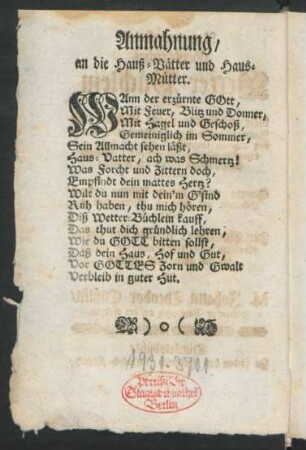 Anmahnung/
an die Hauß-Vätter und Haus-
Mütter.
WAnn der erzürnte GOtt,
Mit Feuer, Blitz und Donner,
Mit Hagel und Geschoß,
Gemeiniglich im Sommer,
Sein Allmacht sehen läßt,
Haus-Vatter, ach was Schmertz!
Was Forcht und Zittern doch,
Empfindt dein mattes Hertz?
Wilt du nun mit dein'm G'sind
Ruh haben, thu mich hören,
Diß Wetter-Büchlein kauff,
Das thut dich gründlich lehren,
Wie du GOTT bitten sollst,
Daß dein Haus, Hof und Gut,
Vor GOTTES Zorn und Gwalt
Verbleib in guter Hut.
1931.3701
Preußische
Staatsbibliothek
Berlin